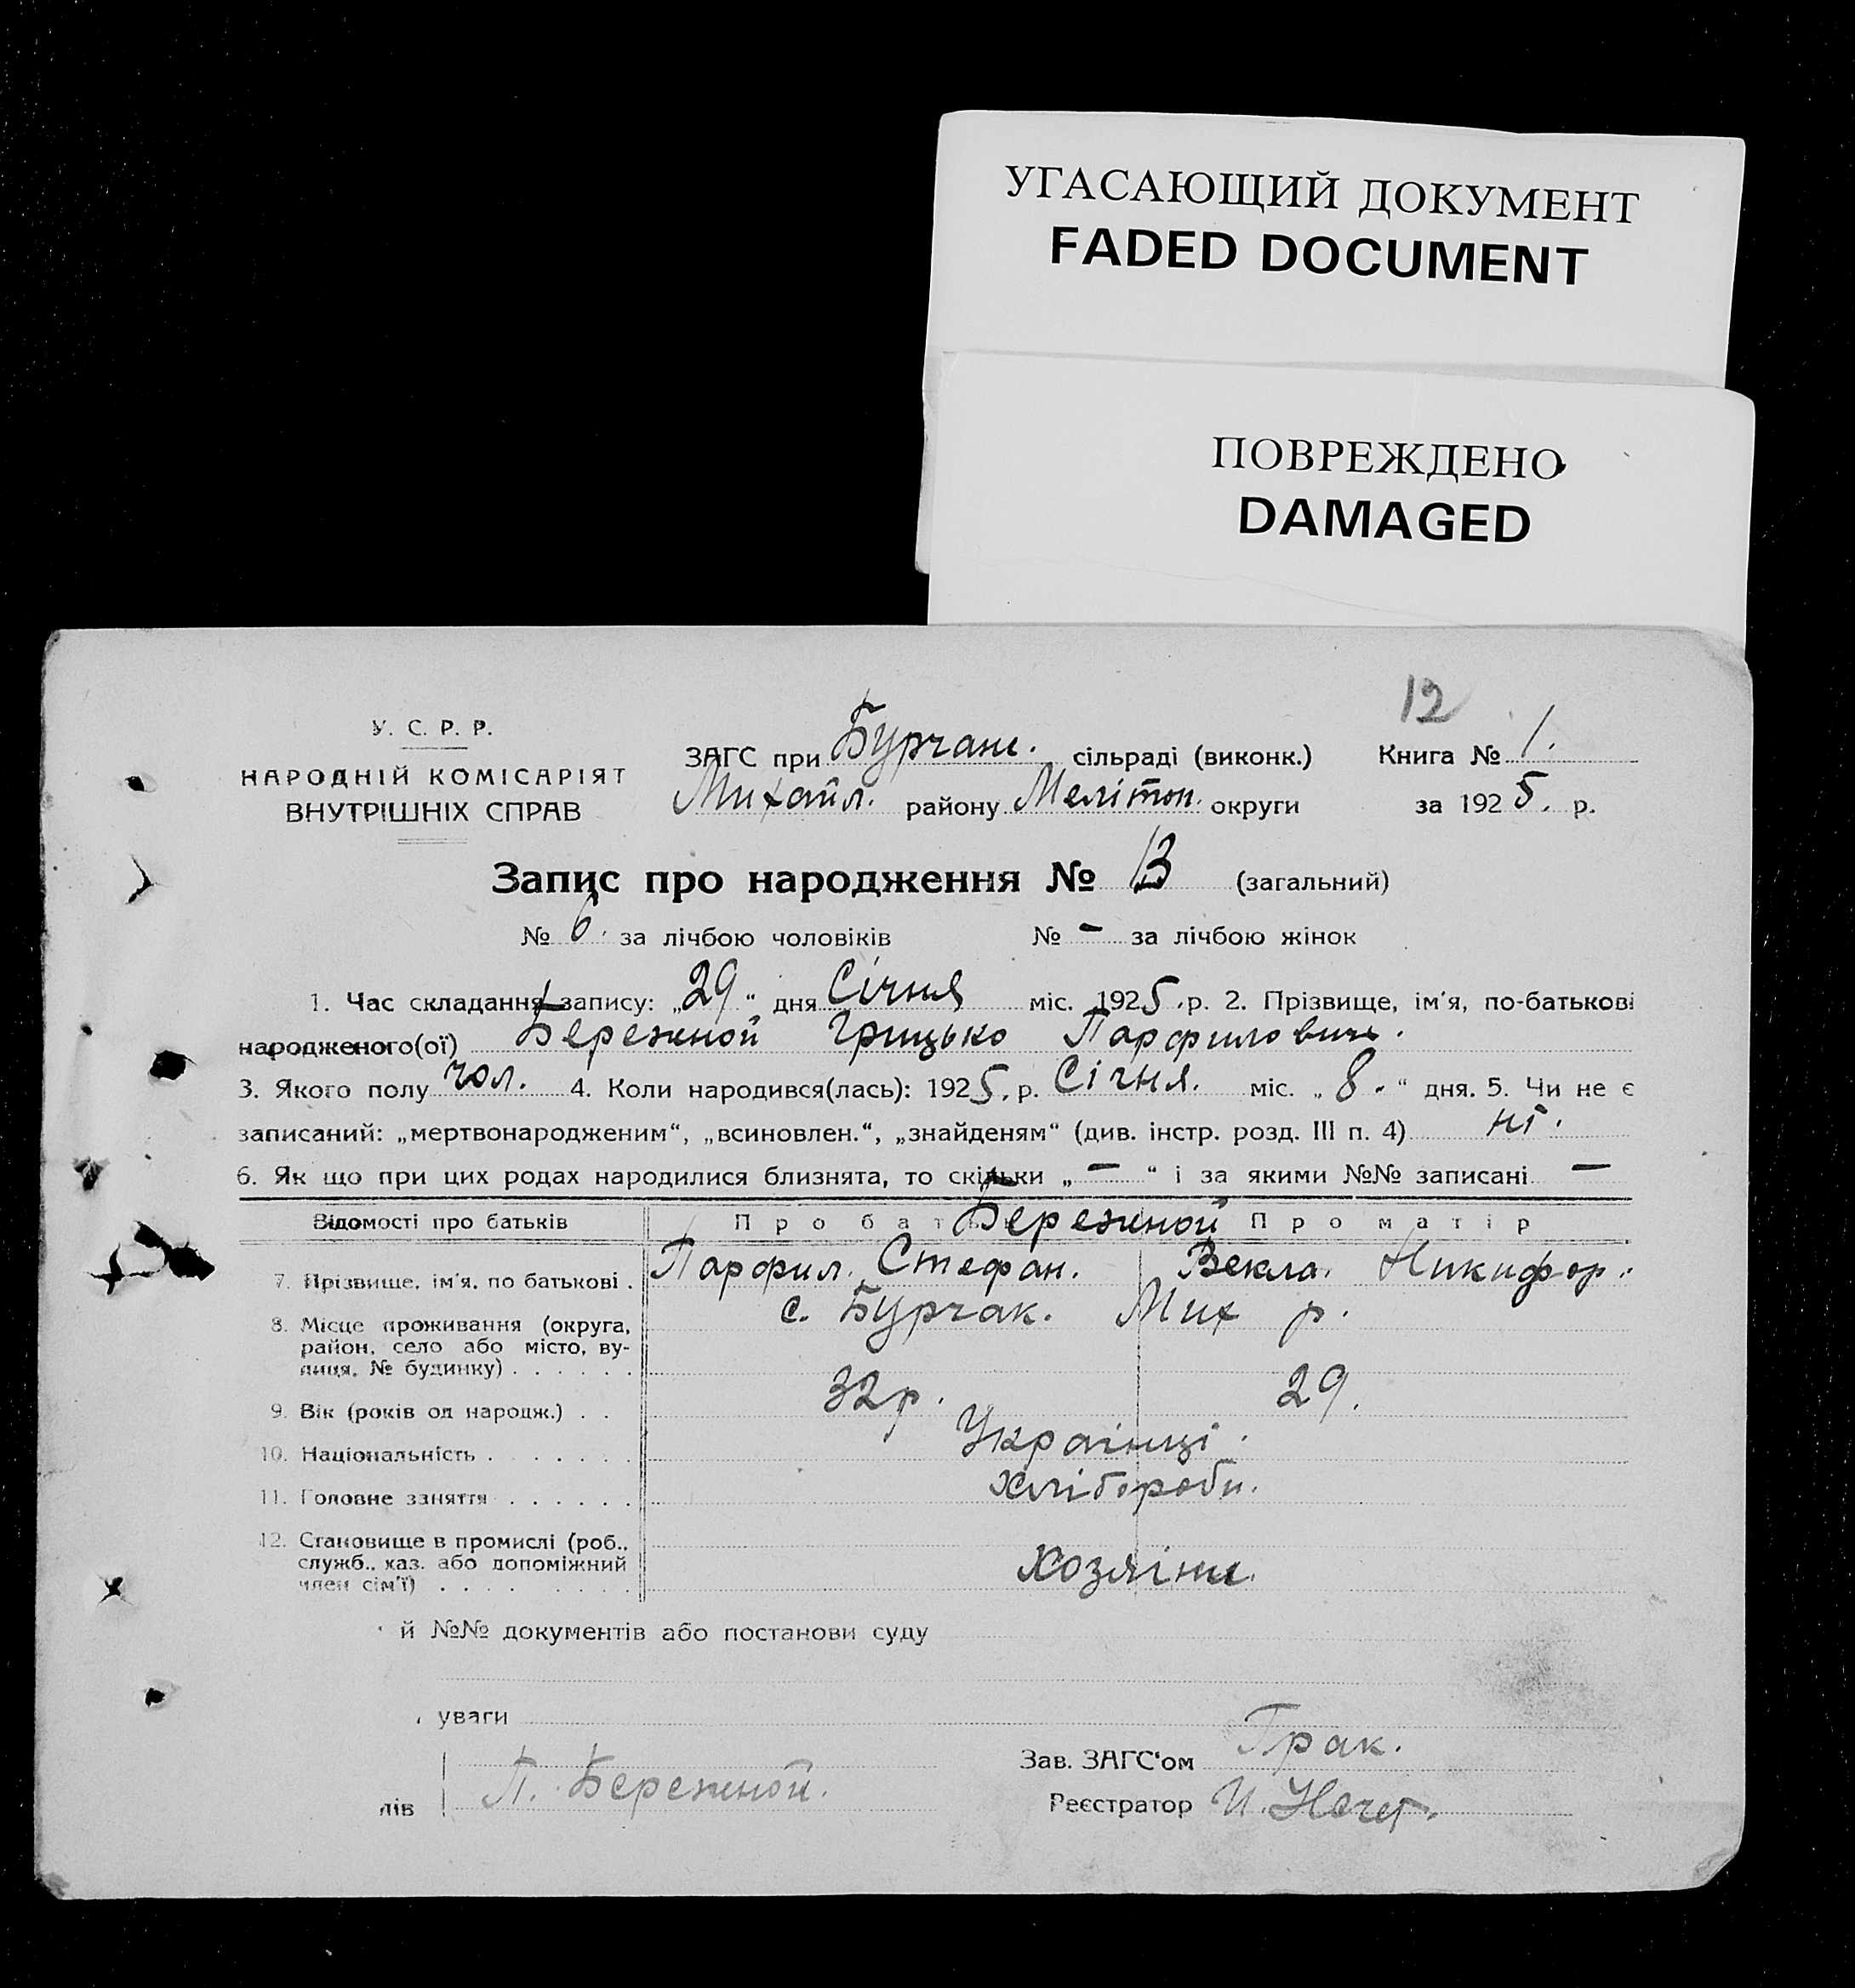 УГАСАЮЩИЙ ДОКУМЕНТ
FADED DOCUMENT
ПОВРЕЖДЕНО
DAMAGED
12
У. С. Р. Р.
НАРОДНІЙ КОМІСАРІЯТ
ВНУТРІШНІХ СПРАВ
ЗАГС при Бурчанс. сільраді (виконк.) Книга № 1.
Михайл. району Мелітоп. округи за 1925. р.
Запис про народження № 13 (загальний)
№ 6. за лічбою чоловіків № – за лічбою жінок
1. Час складання запису: „29“ дня Січня міс. 1925 р. 2. Прізвище, ім'я, по-батькові
народженого(ої) Бережной Грицько Парфилович.
3. Якого полу чол. 4. Коли народився(лась): 1925. р. Січня. міс. „8.“ дня. 5. Чи не є
записаний: „мертвонародженим“, „всиновлен.“, „знайденям“ (див. інстр. розд. III п. 4) ні.
6. Як що при цих родах народилися близнята, то скільки „–“ і за якими №№ записані –
Відомості про батьків Про батька Про матір
Бережной
7. Прізвище, ім'я, по батькові . Парфил. Стефан. Векла. Никифор.
8. Місце проживання (округа, с. Бурчак. Мих р.
район, село або місто, ву-
лиця, № будинку) . . . . . .
9. Вік (років од народж.) . . 32р. 29.
10. Національність . . . . . . . Українці.
11. Головне заняття . . . . . . Хлібороби.
12. Становище в промислі (роб.,
служб., хаз. або допоміжний Хозяїни.
член сім'ї) . . . . . . . . .
й №№ документів або постанови суду
уваги
Зав. ЗАГС'ом Грак.
лів П. Бережной. Реєстратор И.